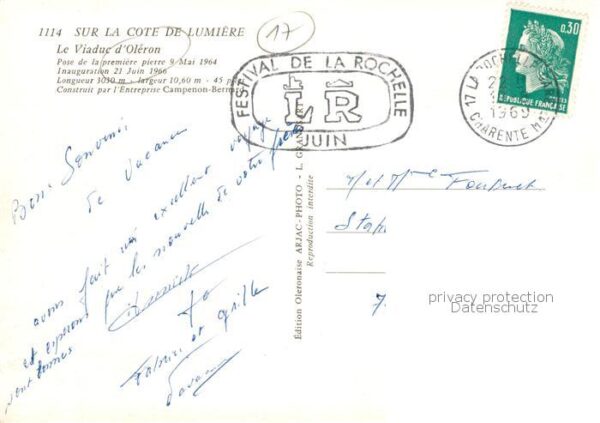 1114 SUR LA COTE DE LUMIÈRE
Le Viaduc d'Oléron
Pose de la première pierre 9 Mai 1964
Inauguration 21 Juin 1966
Longueur 3030 m - largeur 10,60 m - 45 p
Construit par l'Entreprise Campenon-Bern
17
FESTIVAL DE LA ROCHELLE
LR
JUIN
17 LA ROCHELLE
1969
CHARENTE
0,30
REPUBLIQUE FRANÇAISE
Bons Souvenirs
de Vacances
avons fait un excellent voyage
et espérons que les nouvelles de votre
sont bonnes
Fabrice et
Édition Oleronaise ARJAC-PHOTO - L. GRAND
Reproduction interdite
M et Mme
7.
privacy protection
Datenschutz